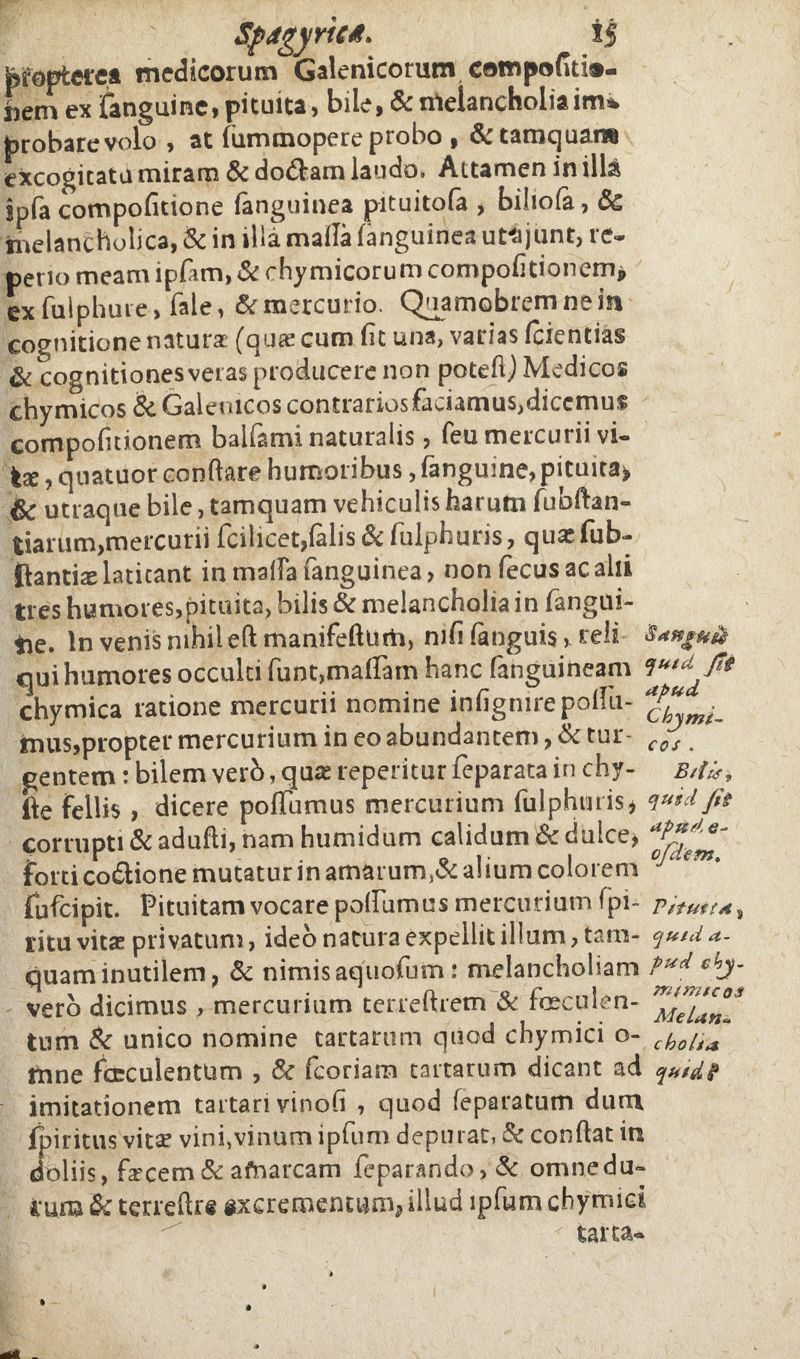 Spagyrica. 15
propterea medicorum Galenicorum compoſitio-
nem ex ſanguine, pituita, bile, & melancholia im-
probare volo , at ſummopere probo , & tamquam
excogitatu miram & doctam laudo. Attamen in illa
ipſa compoſitione ſanguinea pituitoſa , bilioſa, &
melancholica, & in illa maſſa ſanguinea ut ajunt, re-
perio meam ipſam, & chymicorum compoſitionem,
ex ſulphure, ſale, & mercurio. Quamobrem ne in
cognitione naturæ (quæ cum ſit una, varias ſcientias
& cognitiones veras producere non poteſt) Medicos
chymicos & Galenicos contrarios faciamus, dicemus
compoſitionem balſami naturalis , ſeu mercurii vi-
tæ, quatuor conſtare humoribus, ſanguine, pituita,
& utraque bile, tamquam vehiculis harum ſubſtan-
tiarum, mercurii ſcilicet, ſalis & ſulphuris, quæ ſub-
ſtantiæ latitant in maſſa ſanguinea, non ſecus ac alii
tres humores, pituita, bilis & melancholia in ſangui-
ne. In venis nihil eſt manifeſtum, niſi ſanguis, reli-
qui humores occulti ſunt, maſſam hanc ſanguineam
chymica ratione mercurii nomine inſignire poſſu-
mus, propter mercurium in eo abundantem, & tur-
gentem : bilem verò, quæ reperitur ſeparata in chy-
ſte fellis , dicere poſſumus mercurium ſulphuris,
corrupti & aduſti, nam humidum calidum & dulce,
forti coctione mutatur in amarum, & alium colorem
ſuſcipit. Pituitam vocare poſſumus mercurium ſpi-
ritu vitæ privatum, ideò natura expellit illum, tam-
quam inutilem, & nimis aquoſum : melancholiam
verò dicimus , mercurium terreſtrem & fœculen-
tum & unico nomine tartarum quod chymici o-
mne fœculentum , & ſcoriam tartarum dicant ad
imitationem tartari vinoſi , quod ſeparatum dum
ſpiritus vitæ vini, vinum ipſum depurat, & conſtat in
doliis, fæcem & amarcam ſeparando, & omne du-
rum & terreſtre excrementum, illud ipſum chymici
tarta-
Sanguis
quid ſit
apud
Chymi-
cos.
Bilis,
quid ſit
apud e-
oſdem.
Pituita,
quid a-
pud chy-
mimicos
Melan-
cholia
quid?